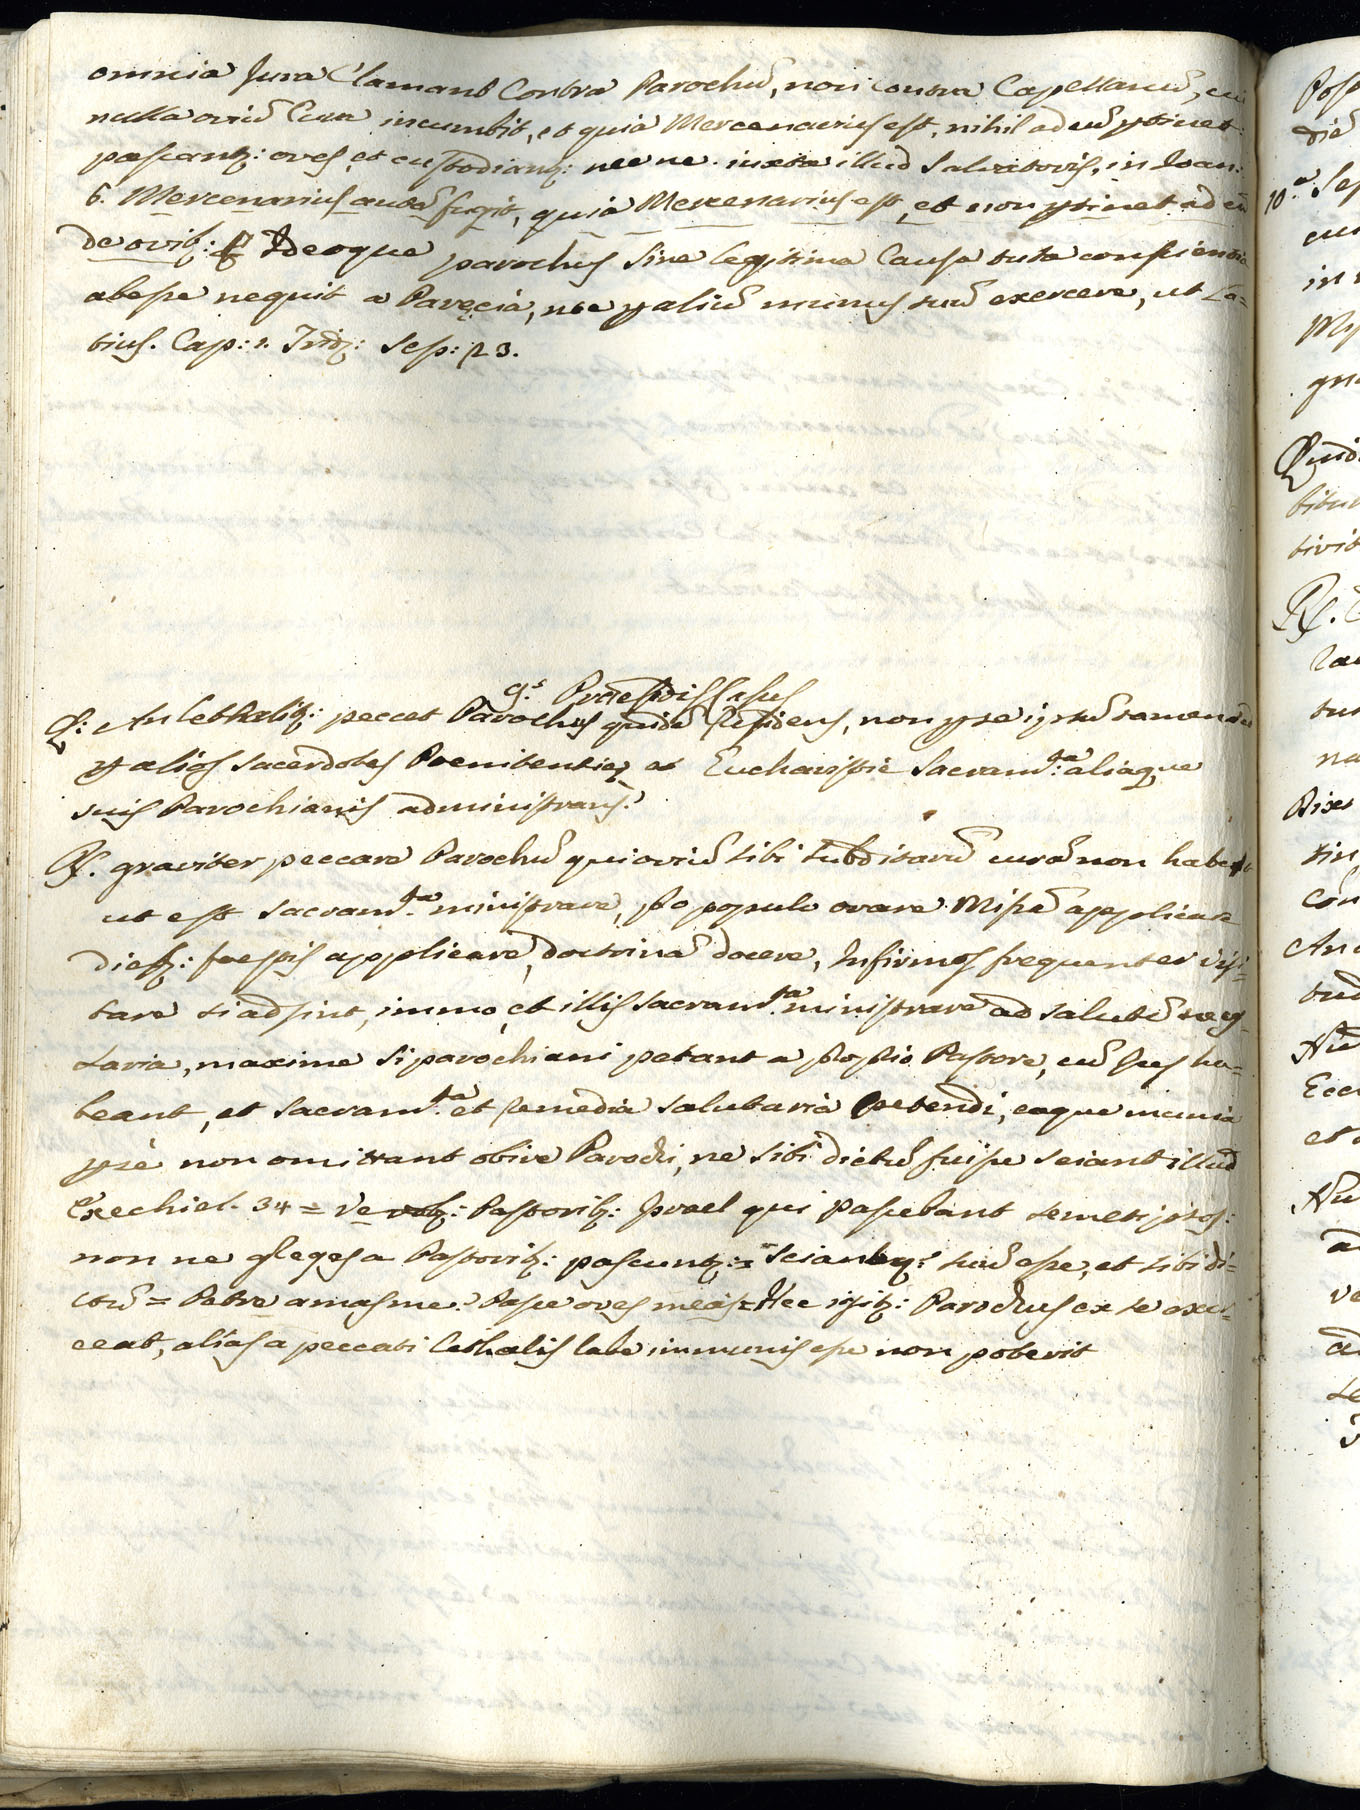 omnia Jura Clamant Contra Parochū, non contra Capellanū, cui
nulla oviū Cura incumbit, et quia Mercenarius est, nihil ad eū ptinet
pascantq: oves, et custodiantq: nec ne. iuxta illud Salvatoris, in Joan:
6. Mercenarius autē fugit, quia Mercenarius est, et non ptinet ad eū
de ovibq: Ideoque parochus sine legitima Causa tuta conscientia
abesse nequit a Parecia, nec p aliū munus suū exercere, ut La=
tius. Cap: 1. Tridq: Ses: 23.
9.s Praesidis Casus
Q: An lethaliq: peccet Parochus quidē residens, non p se ipsū tamen sed
p alios sacerdotes Poenitentiae et Eucharistie Sacram.ta aliaque
suis Parochianis administrans?
R. graviter peccare Parochū qui oviū sibi subditarū curā non habet
ut est sacram.ta ministrare, pro populo orare Missā applicare
diebq: festis applicare, doctrinā docere, Infirmos frequenter visi=
tare si adsint, immo, et illis sacram.ta ministrare ad salutē
=saria, maxime si parochiani petant a proprio Pastore, cū Jus ha=
beant, et sacram.ta et remedia salutaria petendi, eaque munia
p se non omittant obire Parochi, ne sibi dictū fuisse sciant illud
Ezechiel. 34 = Ve Pastoribq: Israel qui pascebant semetipsos:
non ne greges a Pastoribq: pascuntq: = sciantq: suū esse, et sibi di=
ctū = Petre amas me? Pasce oves meas = Hec igitq: Parochus ex se exer=
ceat, alias a peccati lethalis labe immunis esse non poterit